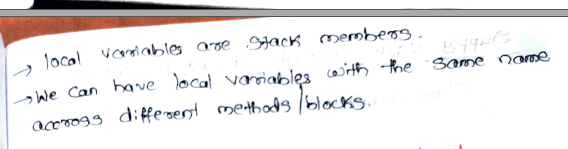 → local variables are stack members.
→ We can have local variables with the same name
accross different methods/blocks.